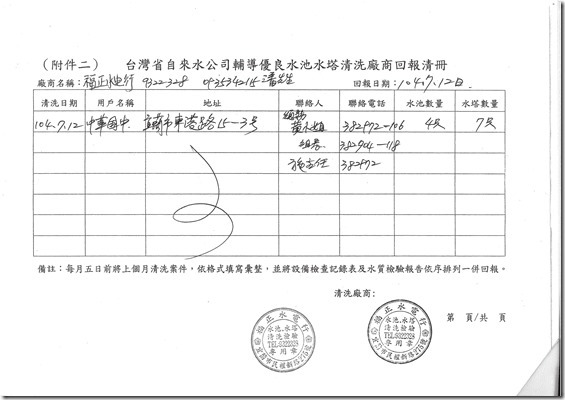 (附件二) 台灣省自來水公司輔導優良水池水塔清洗廠商回報清冊
廠商名稱：福正水电行 9322328 回報日期：104.7.12日
清洗日期 用戶名稱 地址 聯絡人 聯絡電話 水池數量 水塔數量
104.7.12 中華國中 宜蘭市東港路15-3号 382972-106 4只 7只
組長 382904-118
382972
備註：每月五日前將上個月清洗案件，依格式填寫彙整，並將設備檢查記錄表及水質檢驗報告依序排列一併回報。
清洗廠商：
第 頁/共 頁
福正水電行
水池.水塔
清洗檢驗
TEL:9322328
專用章
福正水電行
水池.水塔
清洗檢驗
TEL:9322328
專用章